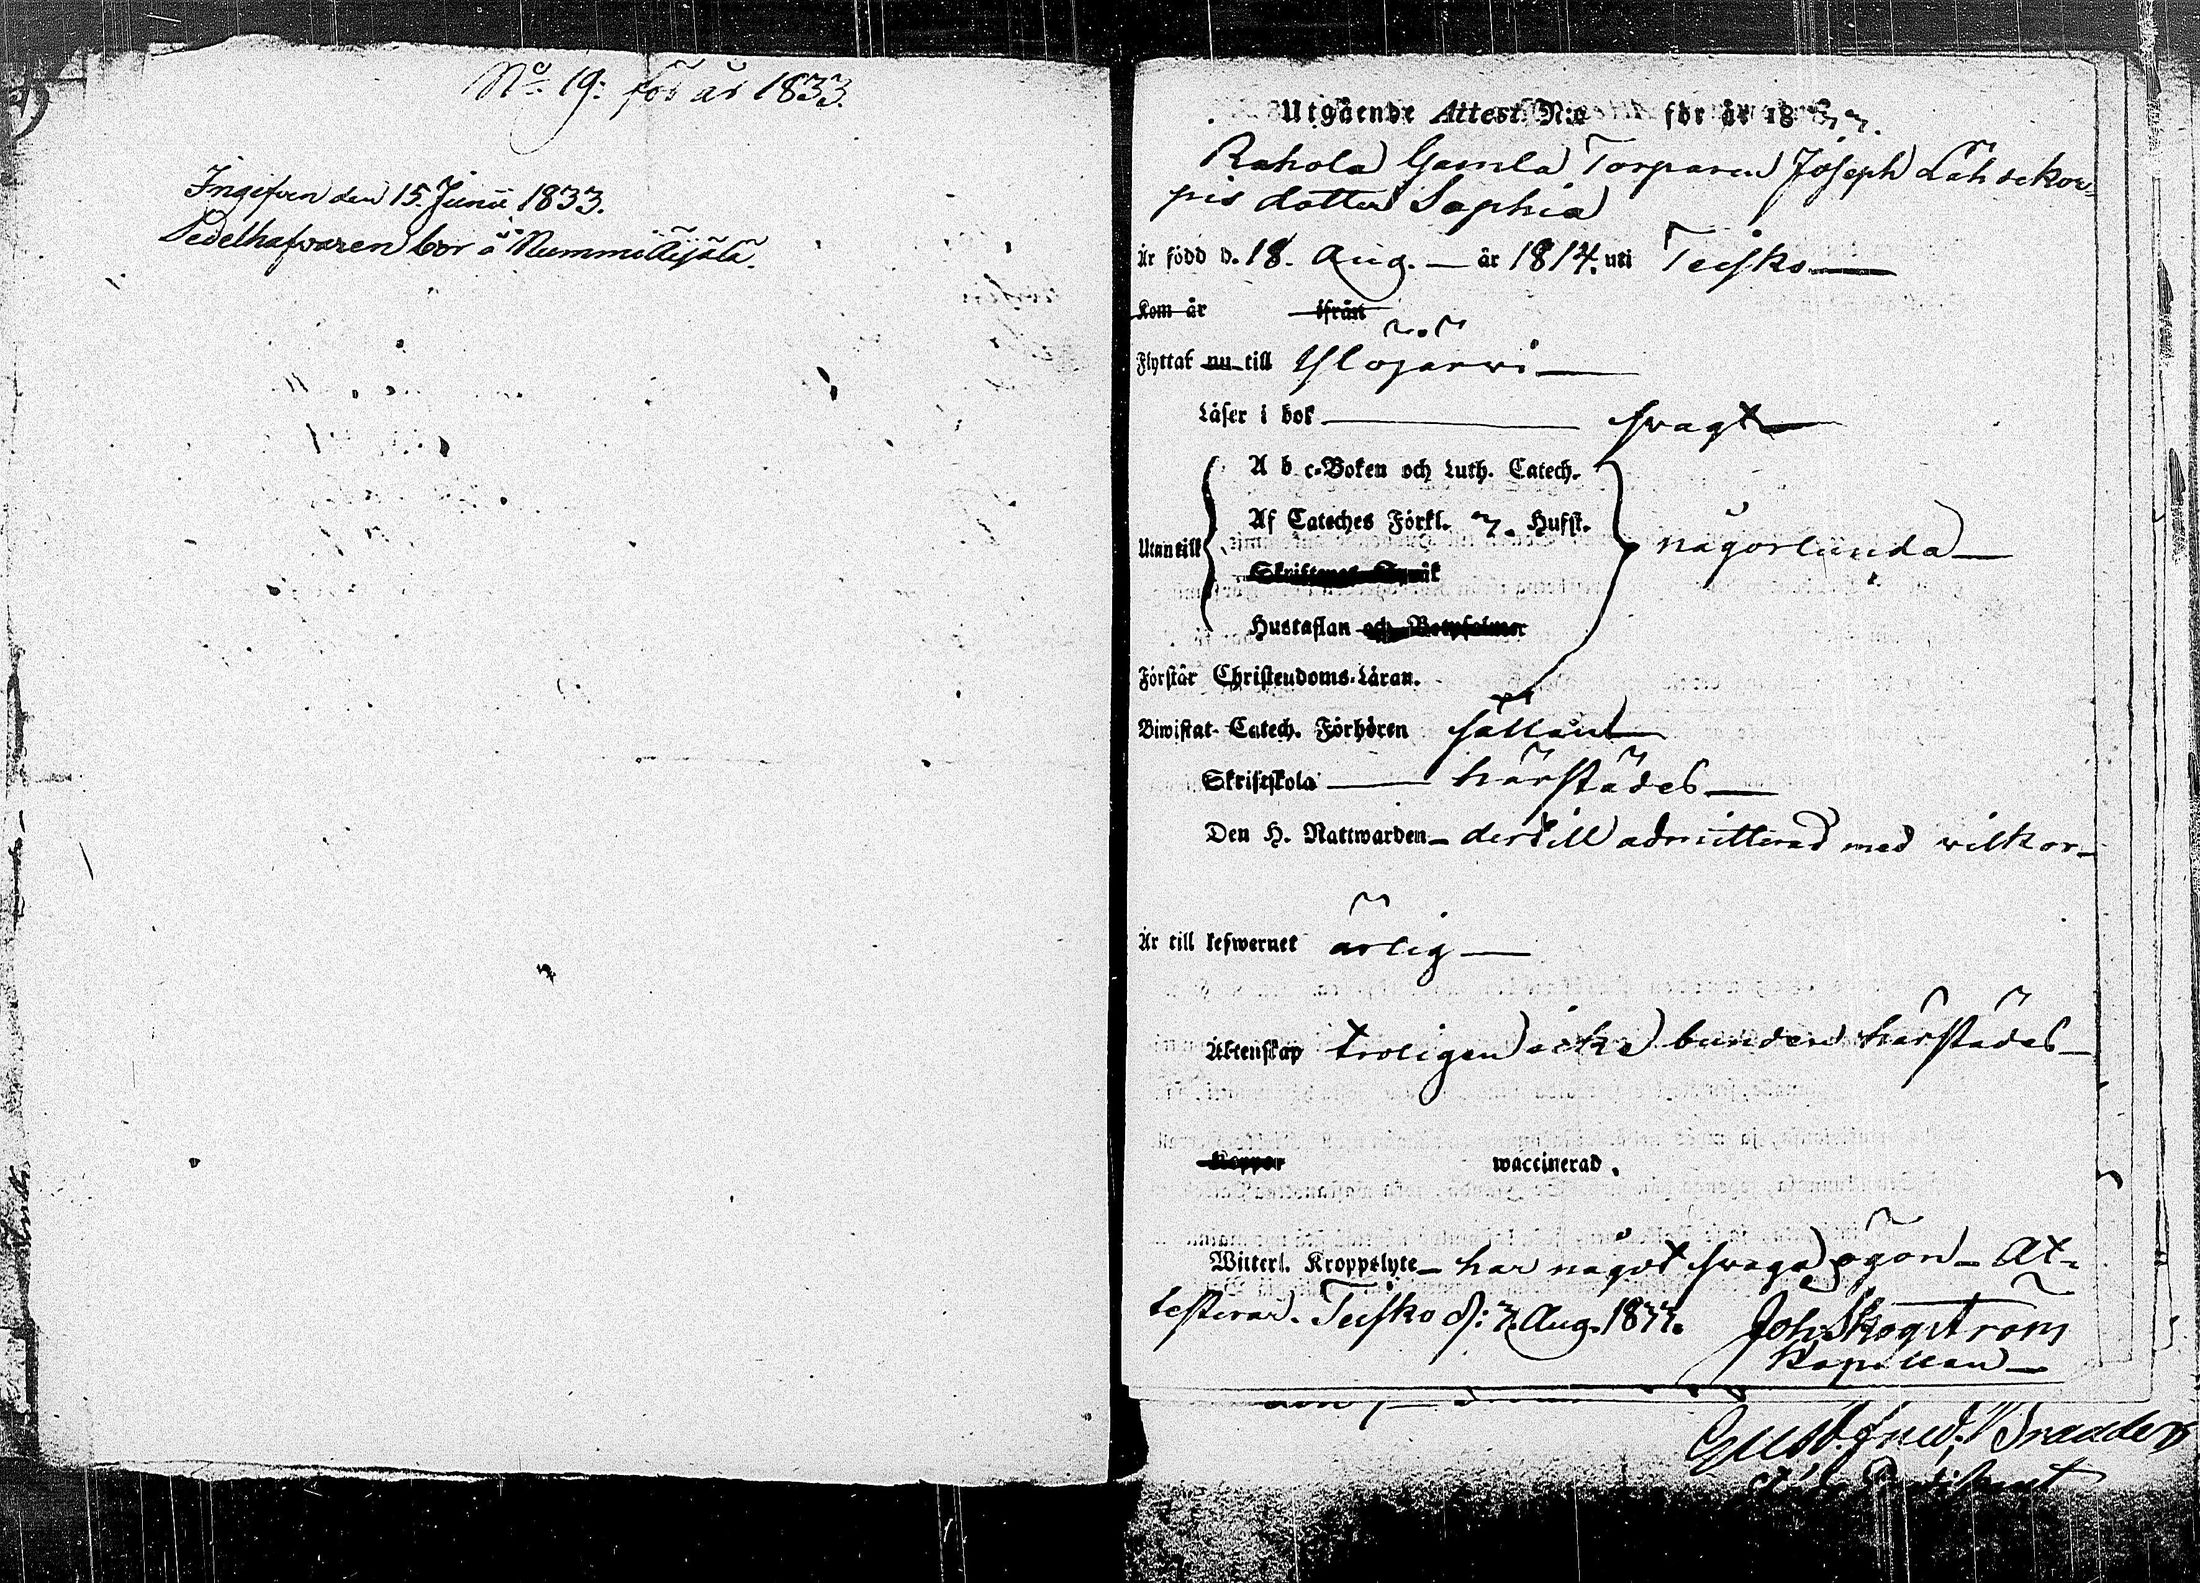 No 19: för år 1833.
Ingifven den 15. Junii 1833.
Sedelhafvaren bor å Nummi Äijälä.
Utgående Attest N:o för år 1833.
Rahola Gamla Torparen Joseph Lähdekor-
pis dotter Sophia
Är född d. 18. Aug. — år 1814. uti Teisko —
Kom år ifrån
Flyttat nu till Ylöjärwi —
Läser i bok — swagt —
A b c-Boken och Luth. Catech.
Af Cateches Förkl. 3. Hufst.
Utantill någorlunda —
Skriftenes Språk
Hustaflan och Botpsalmer
Förstår Christendoms-Läran.
Biwistat Catech. Förhören sällan —
Skriftskola — härstädes —
Den H. Nattwarden — dertill admitterad med wilkor —
Är till lefwernet ärlig —
Äktenskap troligen icke bunden härstädes —
Koppor waccinerad.
Witterl. Kroppslyte — har något swaga ögon — At-
testerar. Teisko d: 3. Aug. 1833. Joh. Skogström
Kapellan —